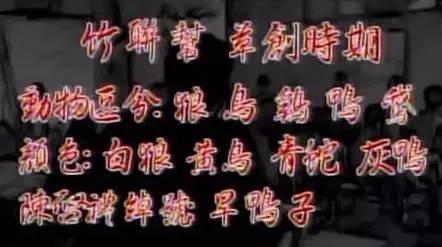 竹聯幫 草創時期
動物区分: 狼 鳥 鴨
顏色: 白狼 黃鳥 青蛇 灰鴨
陳啓禮綽號 旱鴨子